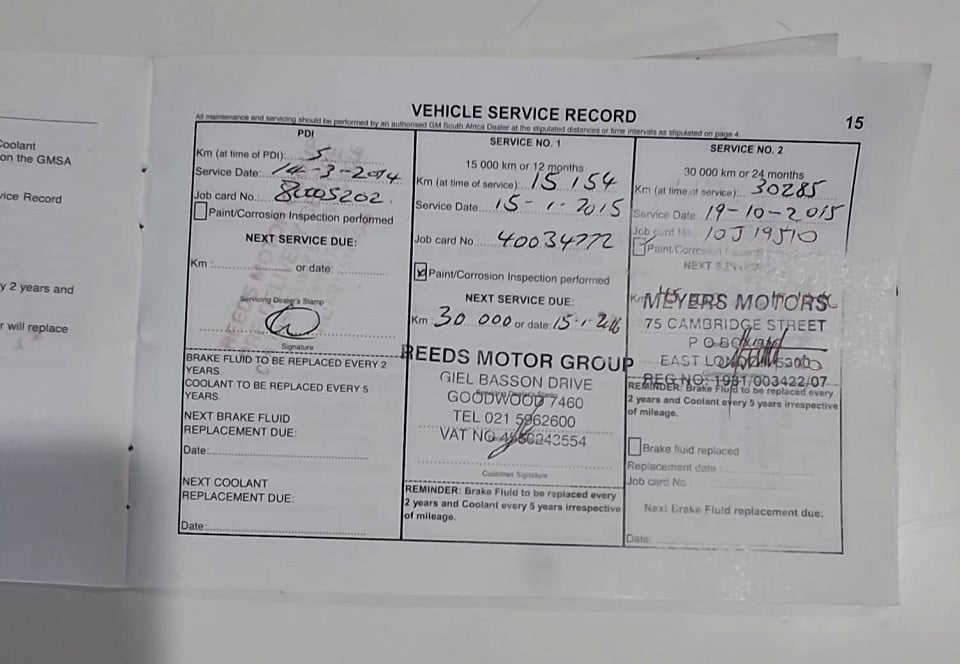 Coolant
on the GMSA
vice Record
y 2 years and
r will replace
VEHICLE SERVICE RECORD
15
All maintenance and servicing should be performed by an authorised GM South Africa Dealer at the stipulated distances or time intervals as stipulated on page 4.
PDI
Km (at time of PDI): 5
Service Date: 14-3-2014
Job card No. 80005202.
Paint/Corrosion Inspection performed
NEXT SERVICE DUE:
Km : or date:
Servicing Dealer's Stamp
Signature
BRAKE FLUID TO BE REPLACED EVERY 2
YEARS.
COOLANT TO BE REPLACED EVERY 5
YEARS.
NEXT BRAKE FLUID
REPLACEMENT DUE:
Date:
NEXT COOLANT
REPLACEMENT DUE:
Date:
SERVICE NO. 1
15 000 km or 12 months
Km (at time of service): 15 154
Service Date: 15-1-2015
Job card No.: 40034772
Paint/Corrosion Inspection performed
NEXT SERVICE DUE:
Km 30 000 or date: 15-1-2016
REEDS MOTOR GROUP
GIEL BASSON DRIVE
GOODWOOD 7460
TEL 021 5962600
VAT NO
Customer Signature
REMINDER: Brake Fluid to be replaced every
2 years and Coolant every 5 years irrespective
of mileage.
SERVICE NO. 2
30 000 km or 24 months
Km (at time of service): 30285
Service Date: 19-10-2015
Job card No. 10J19510
Paint/Corrosion
NEXT
Km
MEYERS MOTORS
75 CAMBRIDGE STREET
P O BOX
EAST LONDON
REG NO: 1981/003422/07
REMINDER: Brake Fluid to be replaced every
2 years and Coolant every 5 years irrespective
of mileage.
Brake fluid replaced
Replacement date
Job card No
Next Brake Fluid replacement due:
Date: